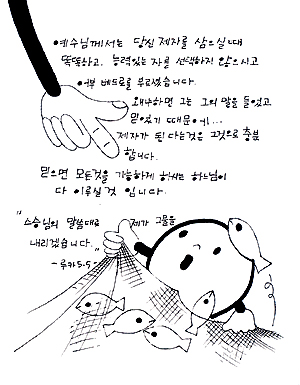 •예수님께서는 당신 제자를 삼으실때
똑똑하고, 능력있는 자를 선택하지 않으시고
어부 베드로를 부르셨습니다.
왜냐하면 그는 그의 말을 들었고
믿었기 때문에...
제자가 된다는것은 그것으로 충분
합니다.
믿으면 모든것을 가능하게 하시는 하느님이
다 이루실것 입니다.
"스승님의 말씀대로 제가 그물을
내리겠습니다."
-루카5.5-